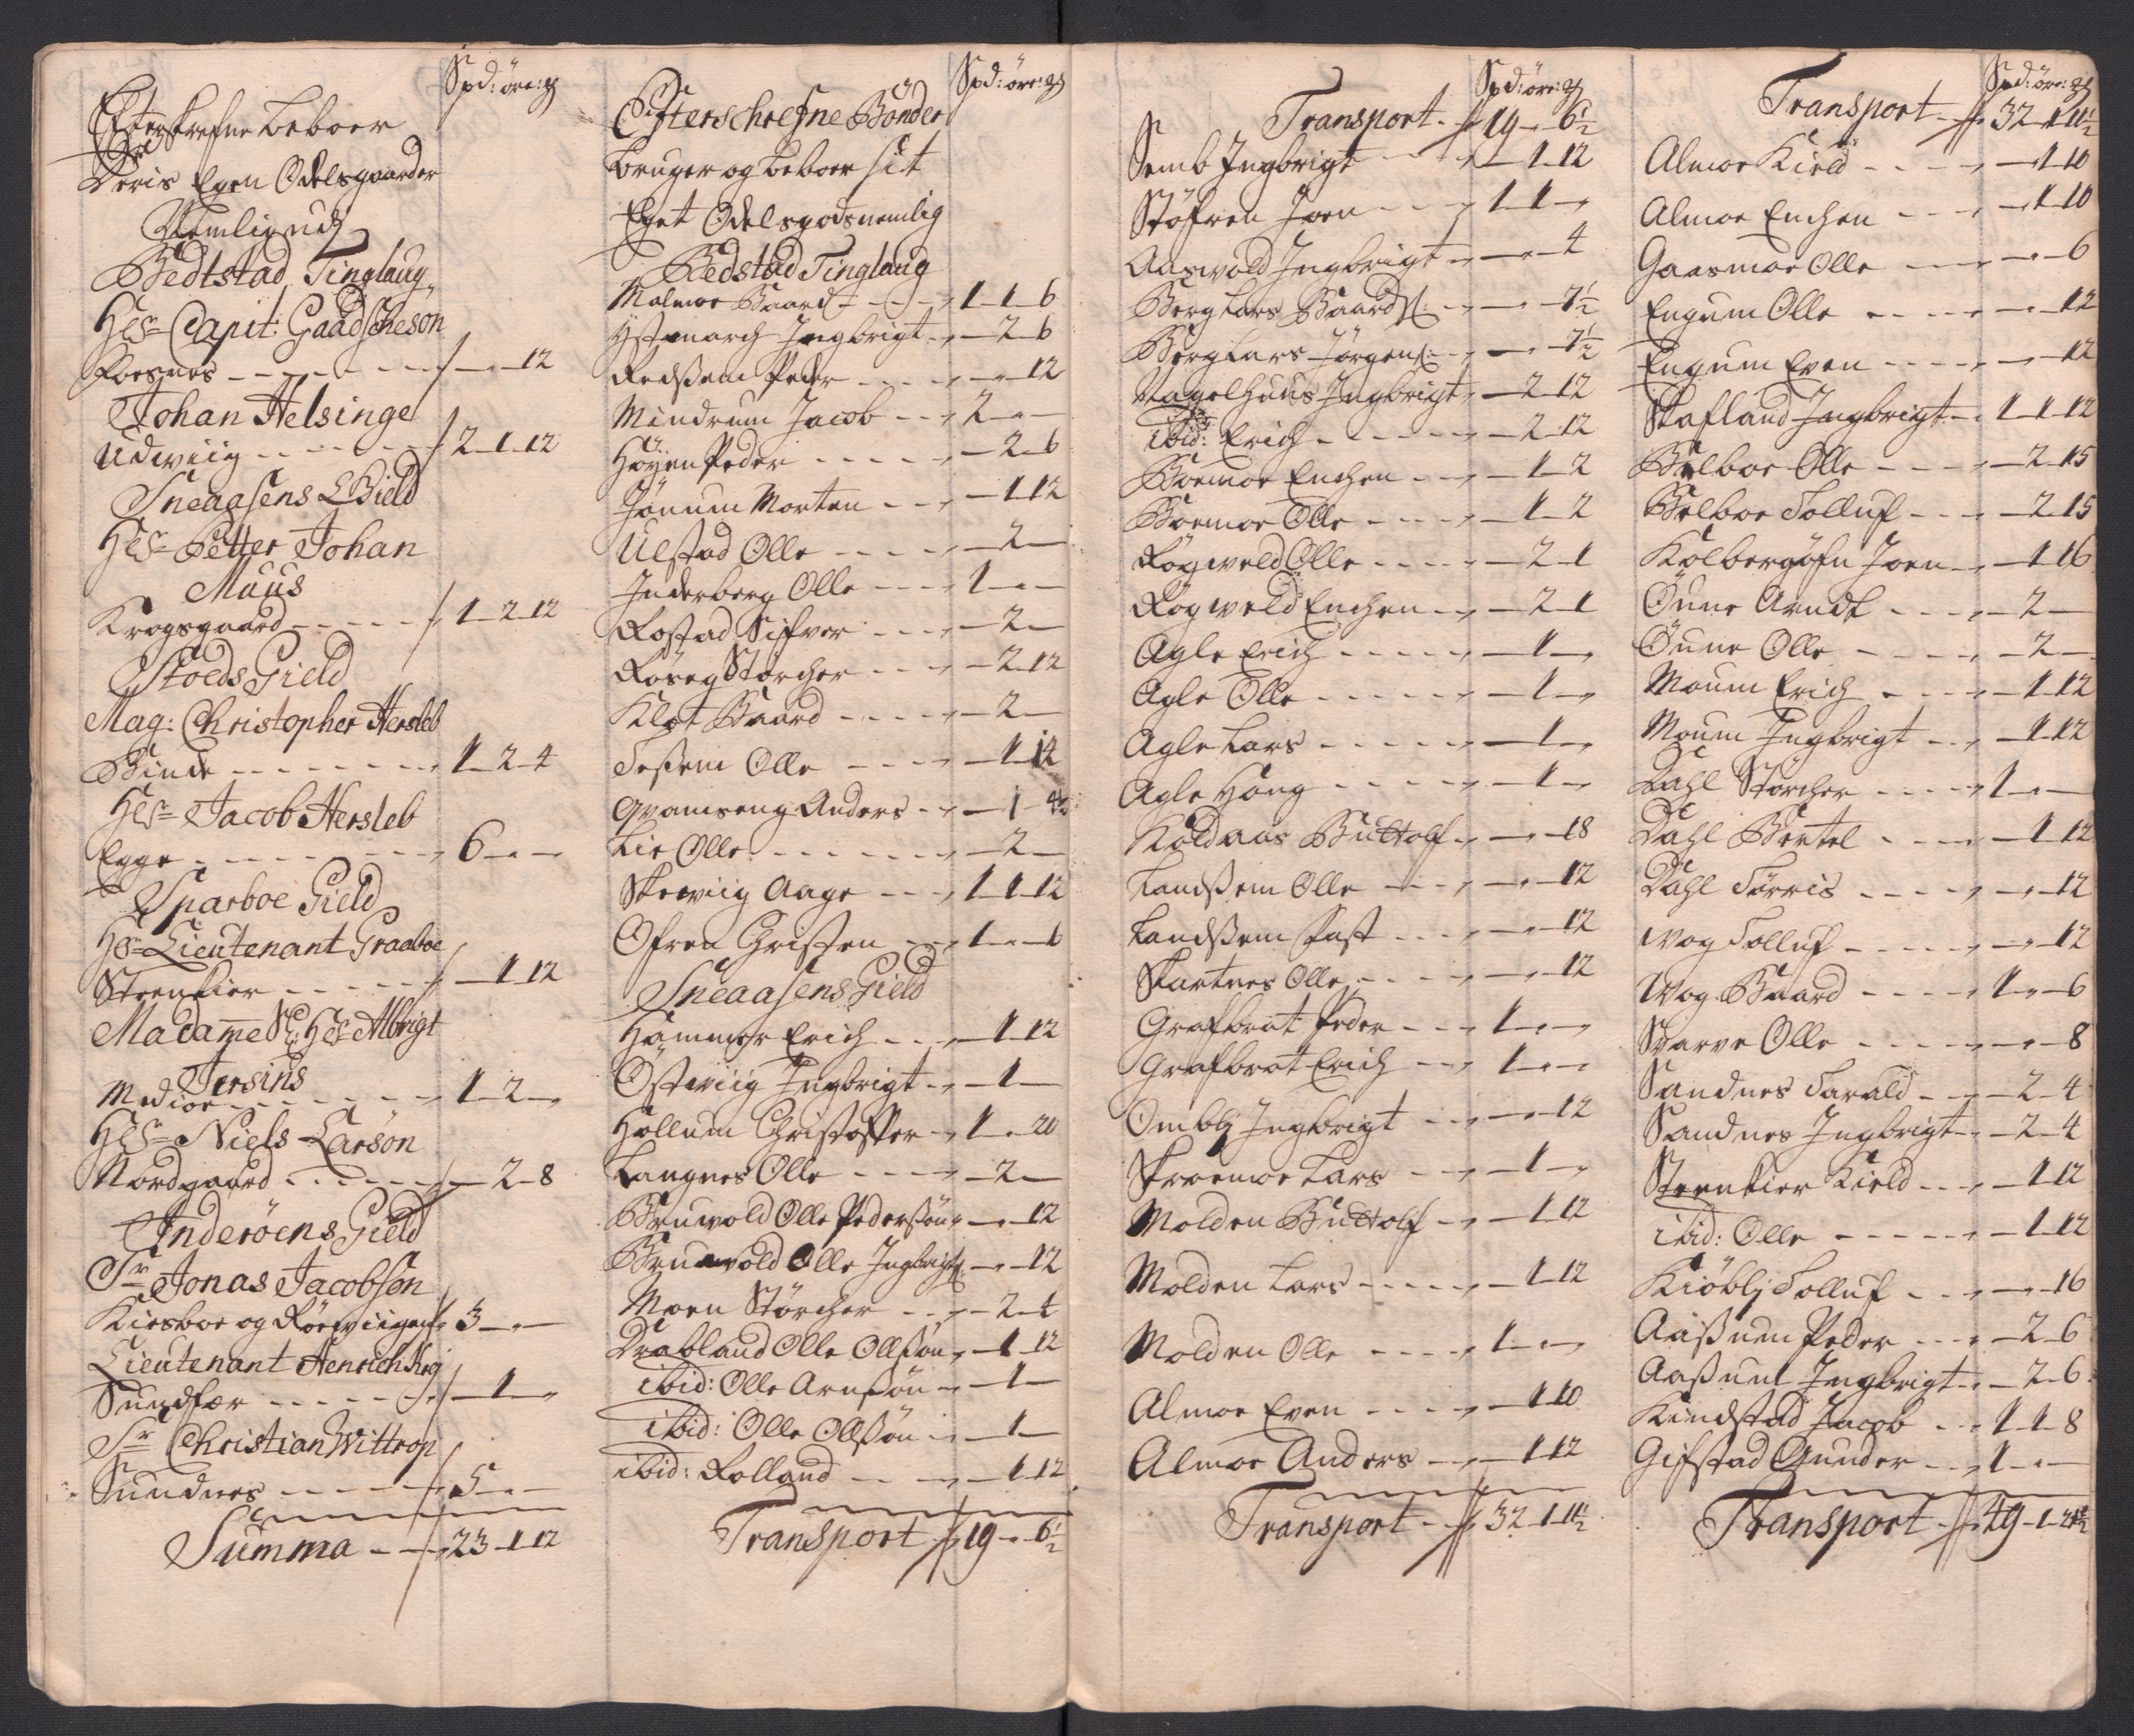 Spd: öre: g
Efterskrefne beboer
Deris Egen Odelsgaarder
Nemlig udj
Bedtstad Tinglaug
Hr Capit: Gaadscheson
Foesnes - 12
Johan Helsinge
Udwiig 2-1-12
Sneaasens Gield
Hr Petter Johan
Muus
Krogsgaard 1-2-12
Stoeds Gield
Mag: Christopher Hersleb
Binde 1-2-4
Hr Jacob Hersleb
Egge 6
Sparboe Gield
Hr Lieutenant Graaboe
Steenkier 1-12
Madamme Sl: Hr Albrigt
Jersins
Medioe 1-2
Hr Niels Larson
Nordgaard 2-8
Inderöens Gield
Sr Jonas Jacobsen
Kiesboe og Röewiigen 3
Lieutenant Henrich Krog
Sundfær 1
Sr Christian Wittrop
Sundnes 5
Summa 23-1-12
Spd: öre: g
Efterschrefne Bönder
bruger og beboer sit
Eget Odelsgods nemlig
Bedstad Tinglaug
Malmoe Baard 1-1-6
Ystmarch Ingbrigt 2-6
Redssem Peder 12
Mindrum Jacob 2
Höyen Peder 2-6
Jönum Morten 1-12
Ulstad Olle 2
Inderberg Olle 1
Rostad Siffver 2
Röseg Störcher 2-12
Klot Baard 2
Fossem Olle 1-12
Qvamseng Anders 1-4½
Lie Olle 2
Skewiig Aage 1-1-12
Ofren Christen 1-6
Sneaasens Gield
Hammer Erich 1-12
Östwiig Ingbrigt 1
Hollum Christoffer 1-20
Langnes Olle 2
Bruwold Olle Pederssön 12
Bruwold Olle Ingbrigts: 12
Moen Störcher 2-4
Drabland Olle Ollssön 1-12
ibid: Olle Arnssön 1
ibid: Olle Ollssön 1
ibid: Rolland 1-12
Transport 19-6½
Spd: öre: g
Transport 19-6½
Semb Ingbrigt 1-12
Stöfren Joen 1-1
Aaswold Ingbrigt 4
Berg Lars Baards: 7½
Berg Lars Jörgens: 7½
Nagelhuus Ingbrigt 2-12
ibid: Erich 2-12
Boemoe Enchen 1-2
Boemoe Olle 1-2
Rögweld Olle 2-1
Rögweld Enchen 2-1
Agle Erich 1
Agle Olle 1
Agle Lars 1
Agle Haag 1
Koldaas Buttolf 18
Landssem Olle 12
Landssem Past 12
Skartnes Olle 12
Grafbrot Peder 1
Grafbrot Erich 1
Omblj Ingbrigt 12
Skroemoe Lars 1
Molden Buttolf 1-12
Molden Lars 1-12
Molden Olle 1
Almoe Even 1-10
Almoe Anders 1-12
Transport 32-1-11½
Spd: öre: g
Transport 32-1-11½
Almoe Kield 1-10
Almoe Enchen 1-10
Gaasmoe Olle 6
Engum Olle 12
Engum Even 12
Skafland Ingbrigt 1-1-12
Belboe Olle 2-15
Belboe Tolluf 2-15
Kolbergöfn Joen 1-16
Öune Arndt 2
Öune Olle 2
Moum Erich 1-12
Moum Ingbrigt 1-12
Dahl Störcher 1
Dahl Bertel 1-12
Dahl Törris 12
Wog Tolluf 12
Wog Baard 1-6
Svarve Olle 8
Sandnes Farald 2-4
Sandnes Ingbrigt 2-4
Steenkier Kield 1-12
ibid: Olle 1-12
Kiöblj Tolluf 16
Aassum Peder 2-6
Aassum Ingbrigt 2-6
Kindstad Jacob 1-1-8
Gifstad Gunder 1
Transport 49-1-21½